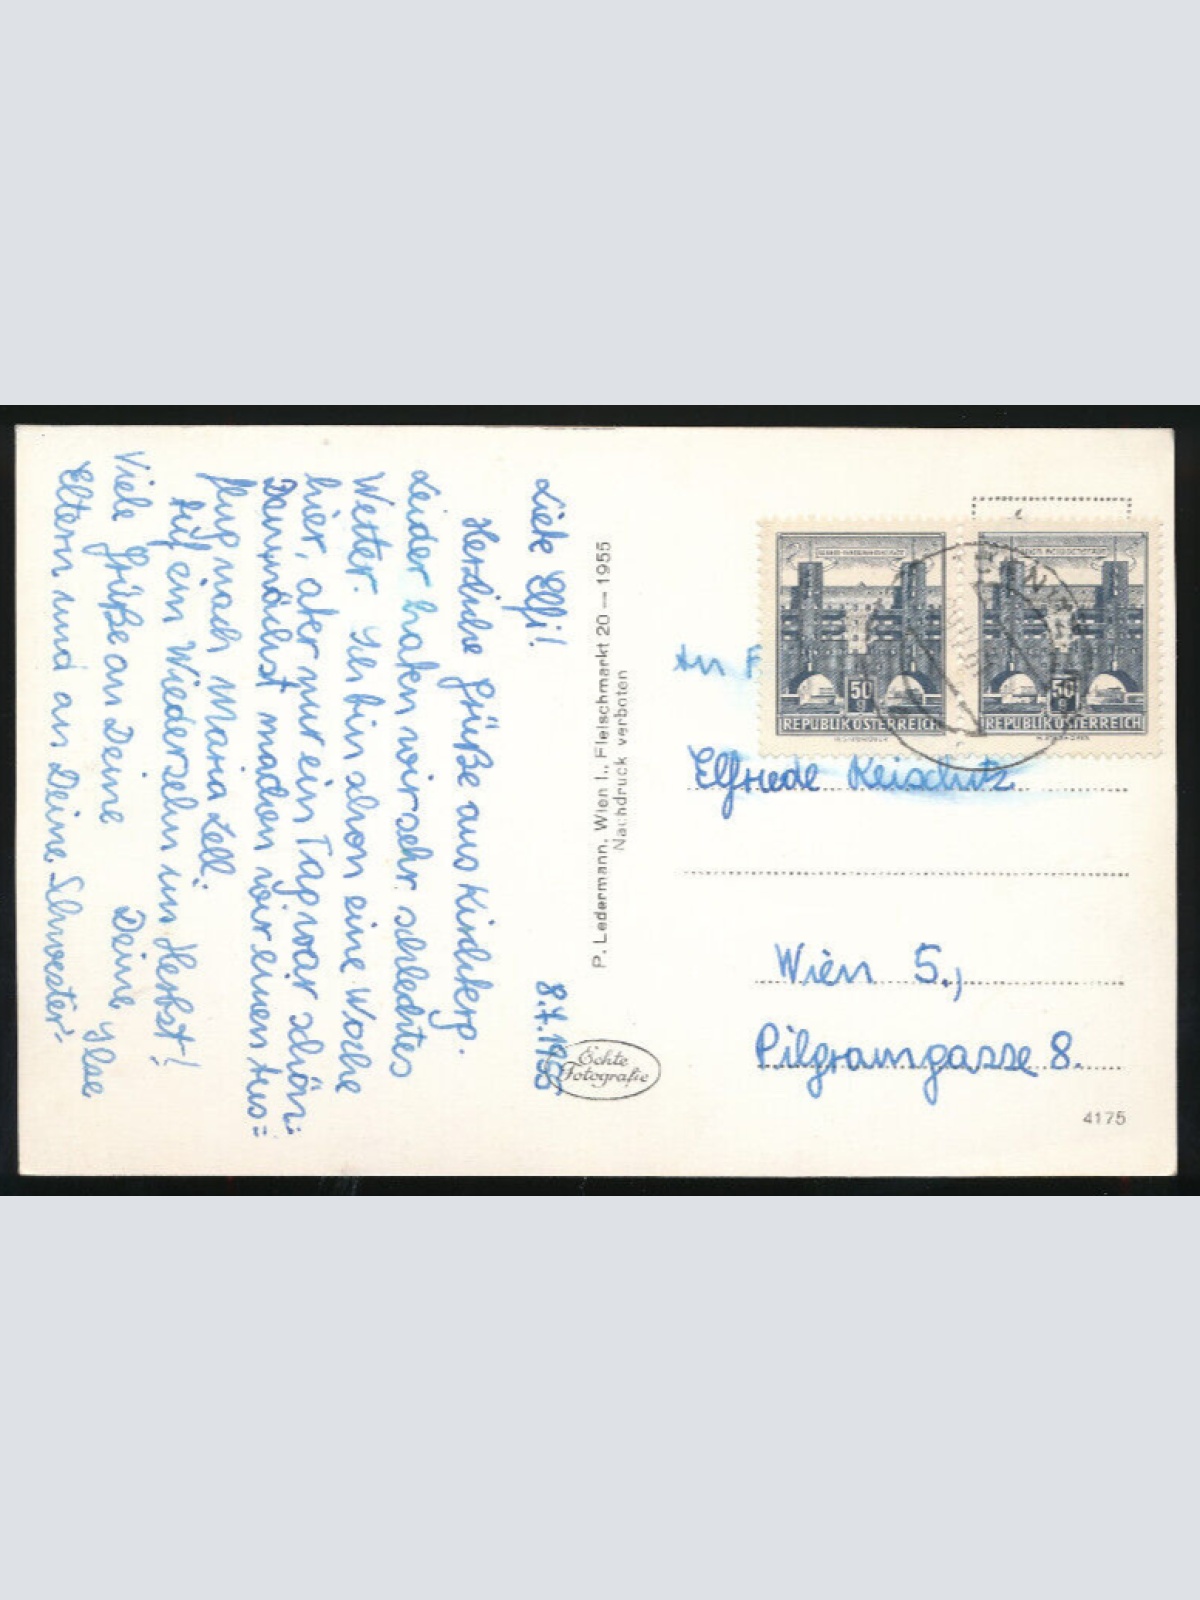 Liebe Elfi!
8.7.1965
Herzliche Grüße aus Kirchberg.
Leider haben wir sehr schlechtes
Wetter. Ich bin schon eine Woche
hier, aber nur ein Tag war schön.
Demnächst machen wir einen Aus=
flug nach Maria Zell.
Auf ein Wiedersehn im Herbst!
Viele Grüße an Deine Deine Ilse
Eltern und an Deine Schwester.
P. Ledermann, Wien I., Fleischmarkt 20 — 1955
Nachdruck verboten
Echte
Fotografie
50
g
REPUBLIK ÖSTERREICH
50
g
REPUBLIK ÖSTERREICH
An F
Elfriede
Wien 5.,
Pilgramgasse 8.
4175